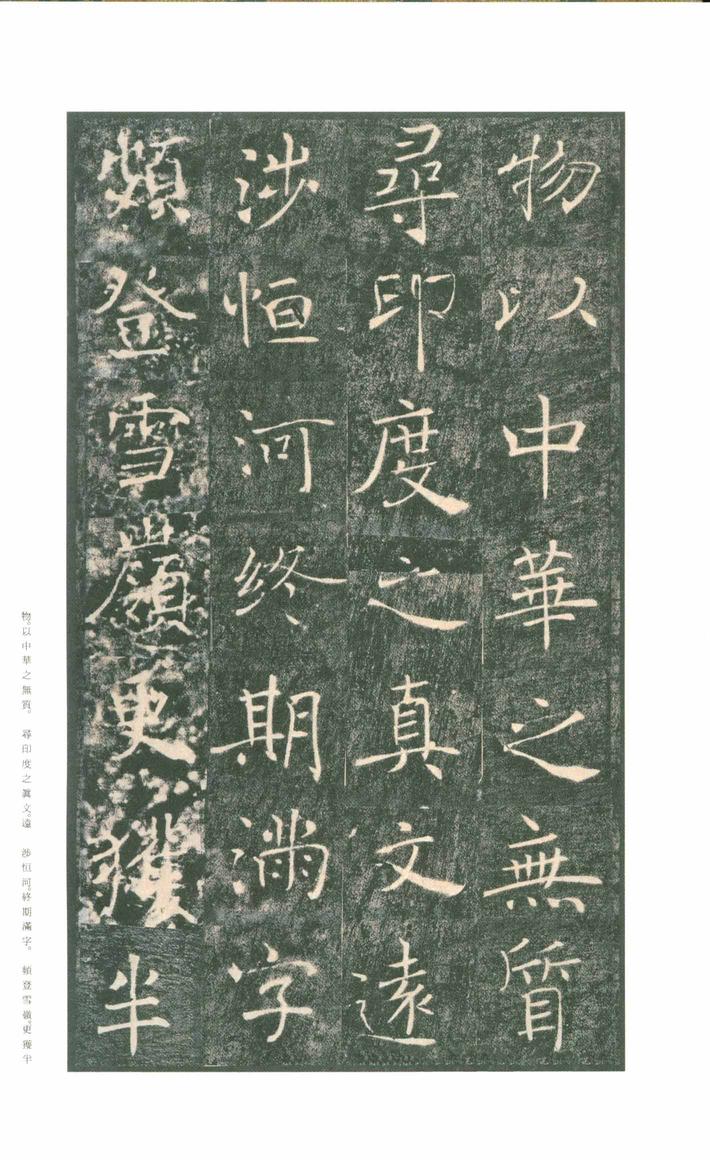 物以中華之無質
尋印度之真文遠
涉恒河終期滿字
頻登雪嶺更獲半
物。以中華之無質。尋印度之眞文。遠涉恒河。終期滿字。頻登雪嶺。更獲半